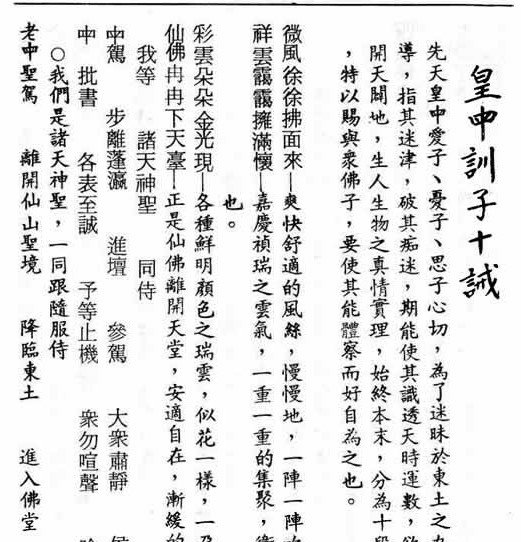 皇中訓子十誡
先天皇中愛子、憂子、思子心切，為了迷昧於東土之
導，指其迷津，破其痴迷，期能使其識透天時運數，
開天闢地，生人生物之真情實理，始終本末，分為十段
，特以賜與衆佛子，要使其能體察而好自為之也。
微風徐徐拂面來—爽快舒適的風絲，慢慢地，一陣一陣
祥雲靄靄擁滿懷—嘉慶禎瑞之雲氣，一重一重的集聚，
也。
彩雲朵朵金光現—各種鮮明顏色之瑞雲，似花一樣，一
仙佛冉冉下天臺—正是仙佛離開天堂，安適自在，漸緩的
我等　諸天神聖　同侍
中駕　步離蓬瀛　進壇　參駕　大衆肅靜
中　批書　各表至誠　予等止機　衆勿喧聲
○我們是諸天神聖，一同跟隨服侍
老中聖駕　離開仙山聖境　降臨東土　進入佛堂